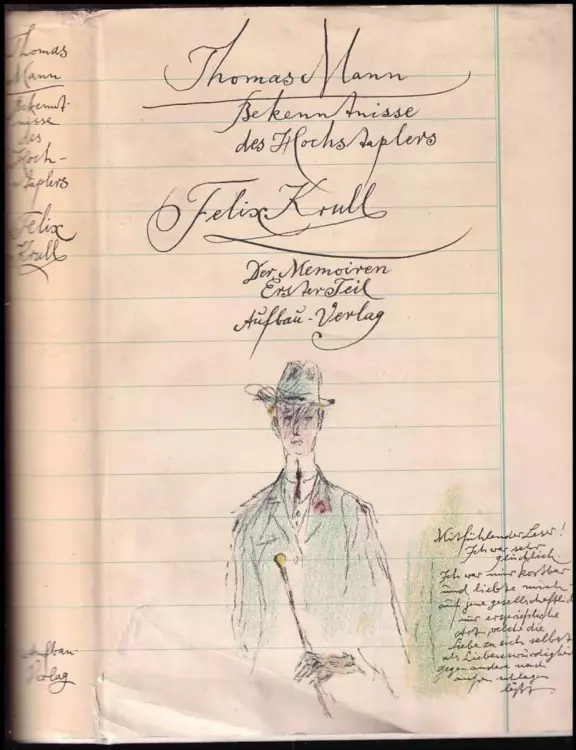 Thomas
Mann
Bekennt-
nisse
des
Hoch-
staplers
Felix
Krull
Aufbau-
Verlag
Thomas Mann
Bekenntnisse
des Hochstaplers
Felix Krull
Der Memoiren
Erster Teil
Aufbau-Verlag
Mitfühlender Leser!
Ich war sehr
glücklich.
Ich war mir kostbar
und liebte mich
auf jene gesellschaftlich
nur ersprießliche
Art, welche die
Liebe zu sich selbst
als Liebenswürdigkeit
gegen andere nach
außen schlagen
läßt.